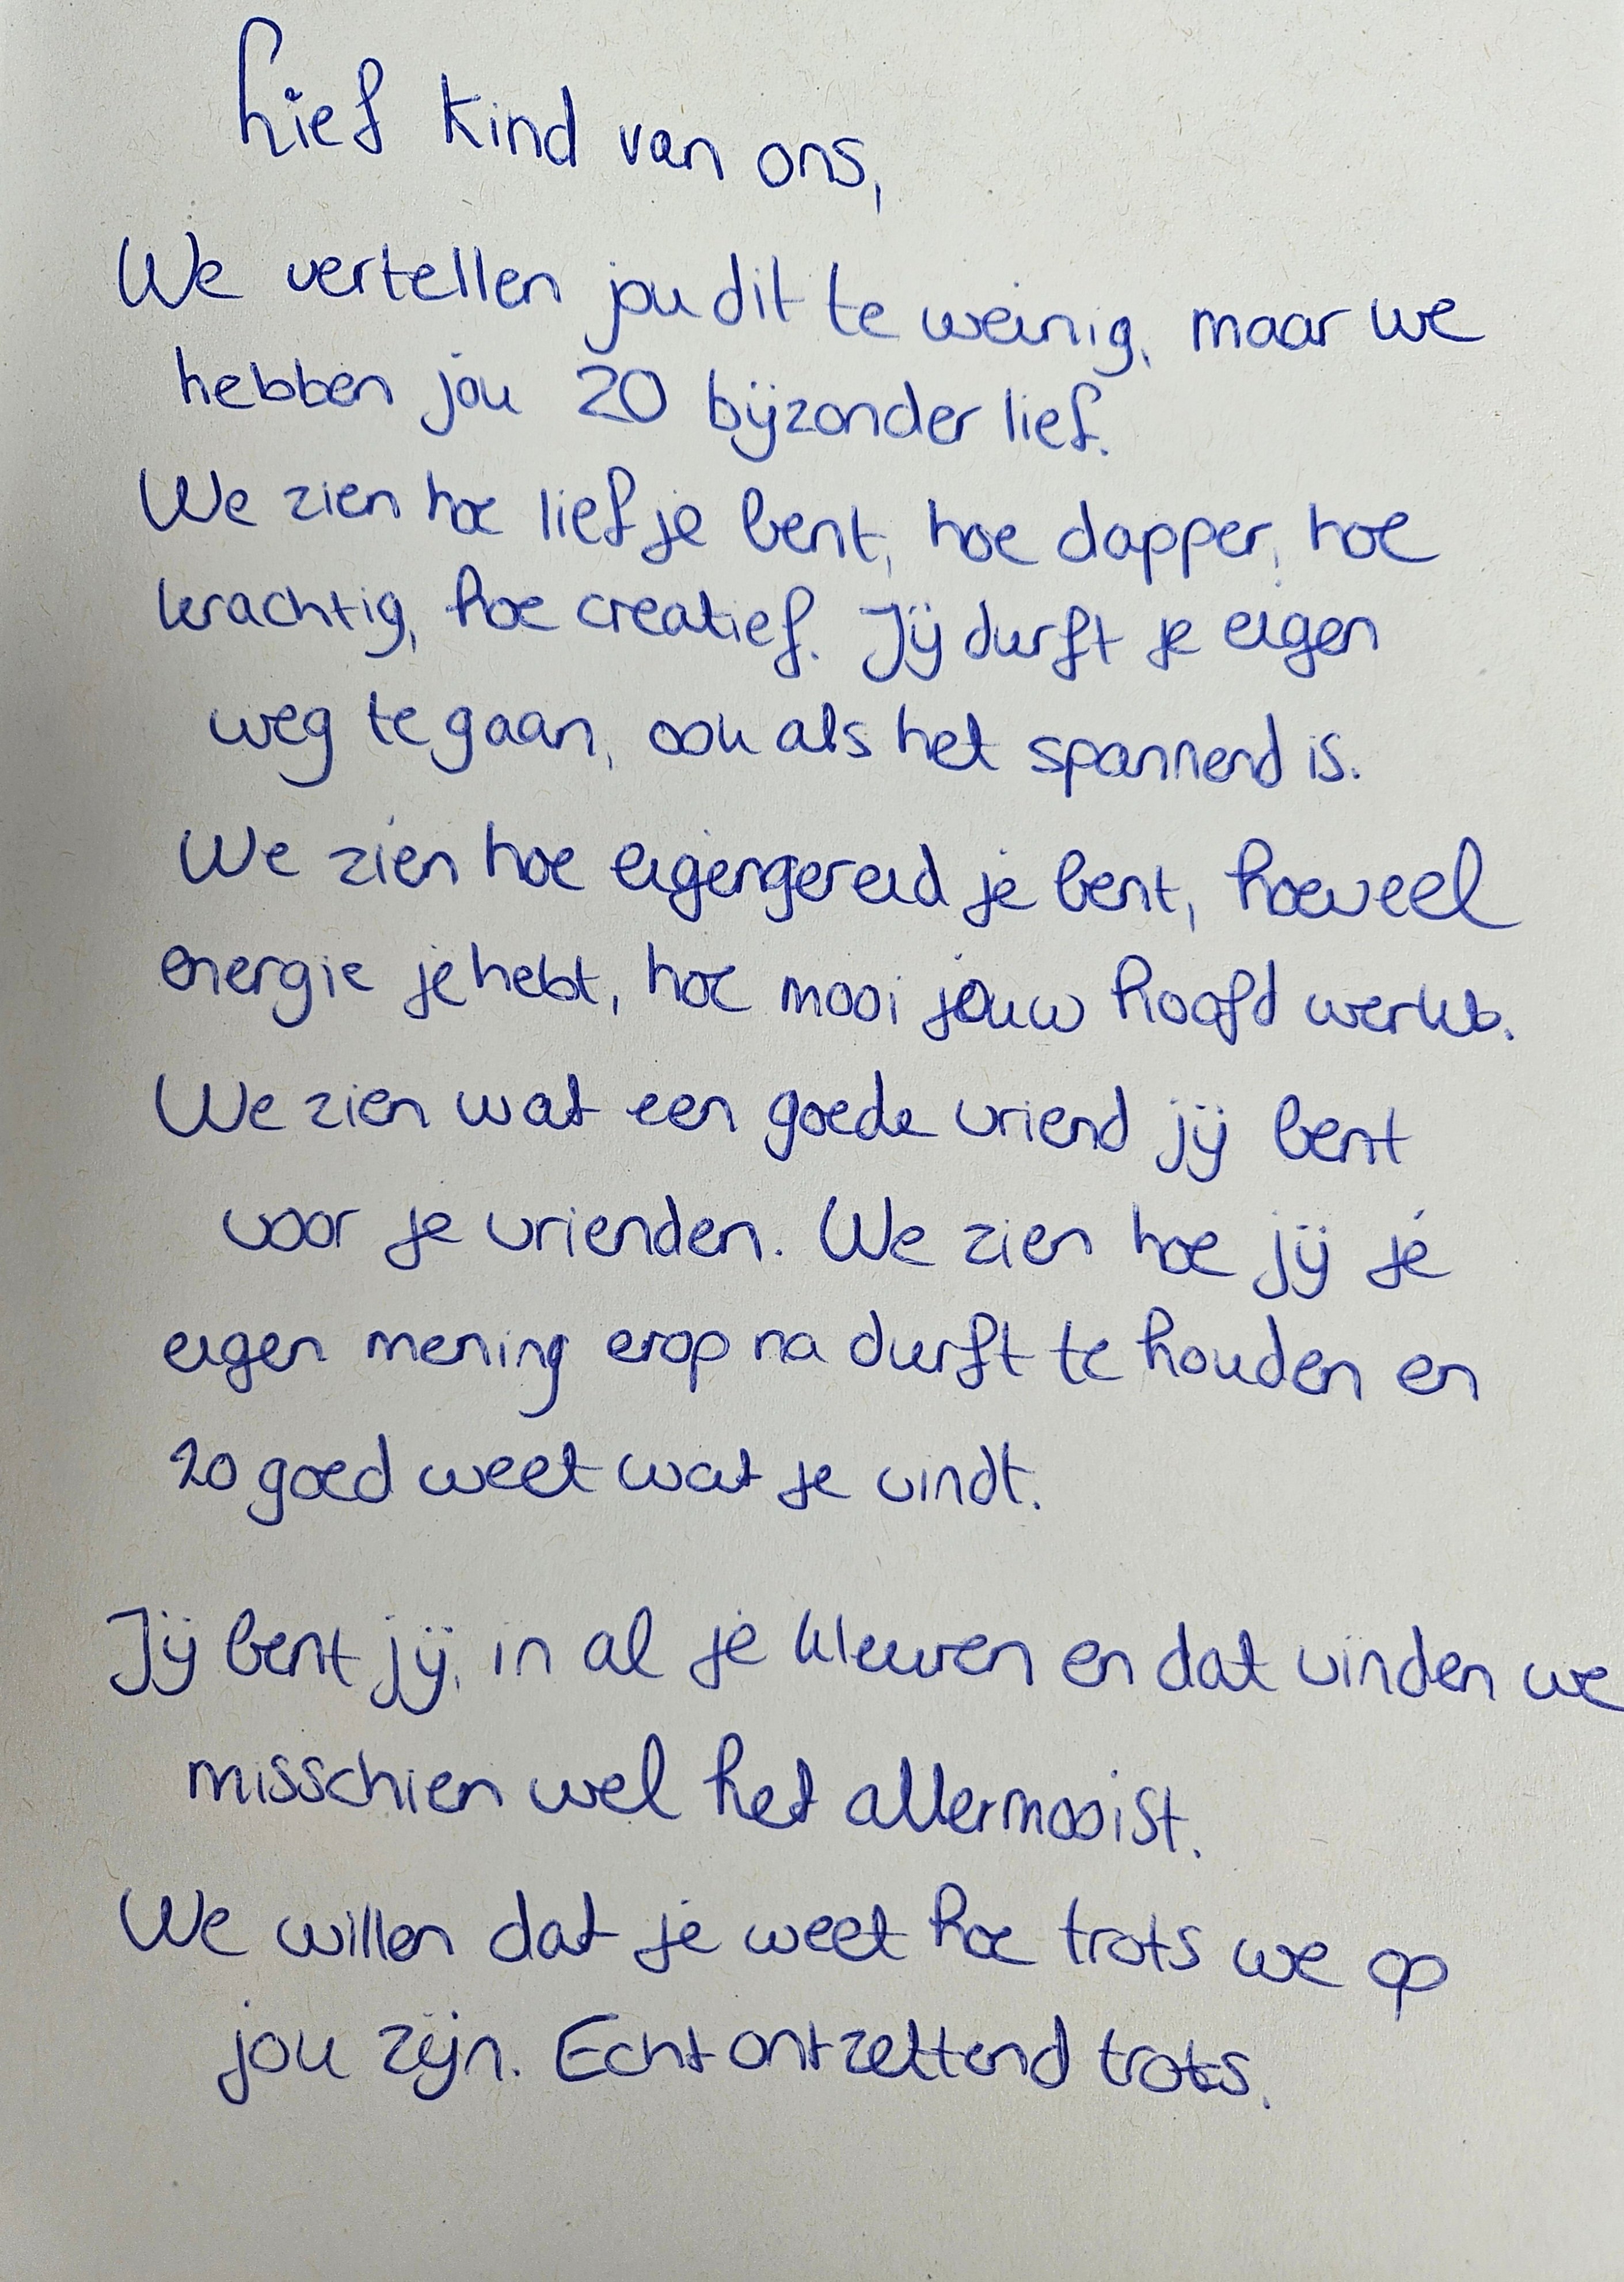 Lief kind van ons,
We vertellen jou dit te weinig, maar we
hebben jou ZO bijzonder lief.
We zien hoe lief je bent, hoe dapper, hoe
krachtig, hoe creatief. Jij durft je eigen
weg te gaan, ook als het spannend is.
We zien hoe eigengereid je bent, hoeveel
energie je hebt, hoe mooi jouw hoofd werkt.
We zien wat een goede vriend jij bent
voor je vrienden. We zien hoe jij je
eigen mening erop na durft te houden en
zo goed weet wat je vindt.
Jij bent jij, in al je kleuren en dat vinden we
misschien wel het allermooist.
We willen dat je weet hoe trots we op
jou zijn. Echt ontzettend trots.